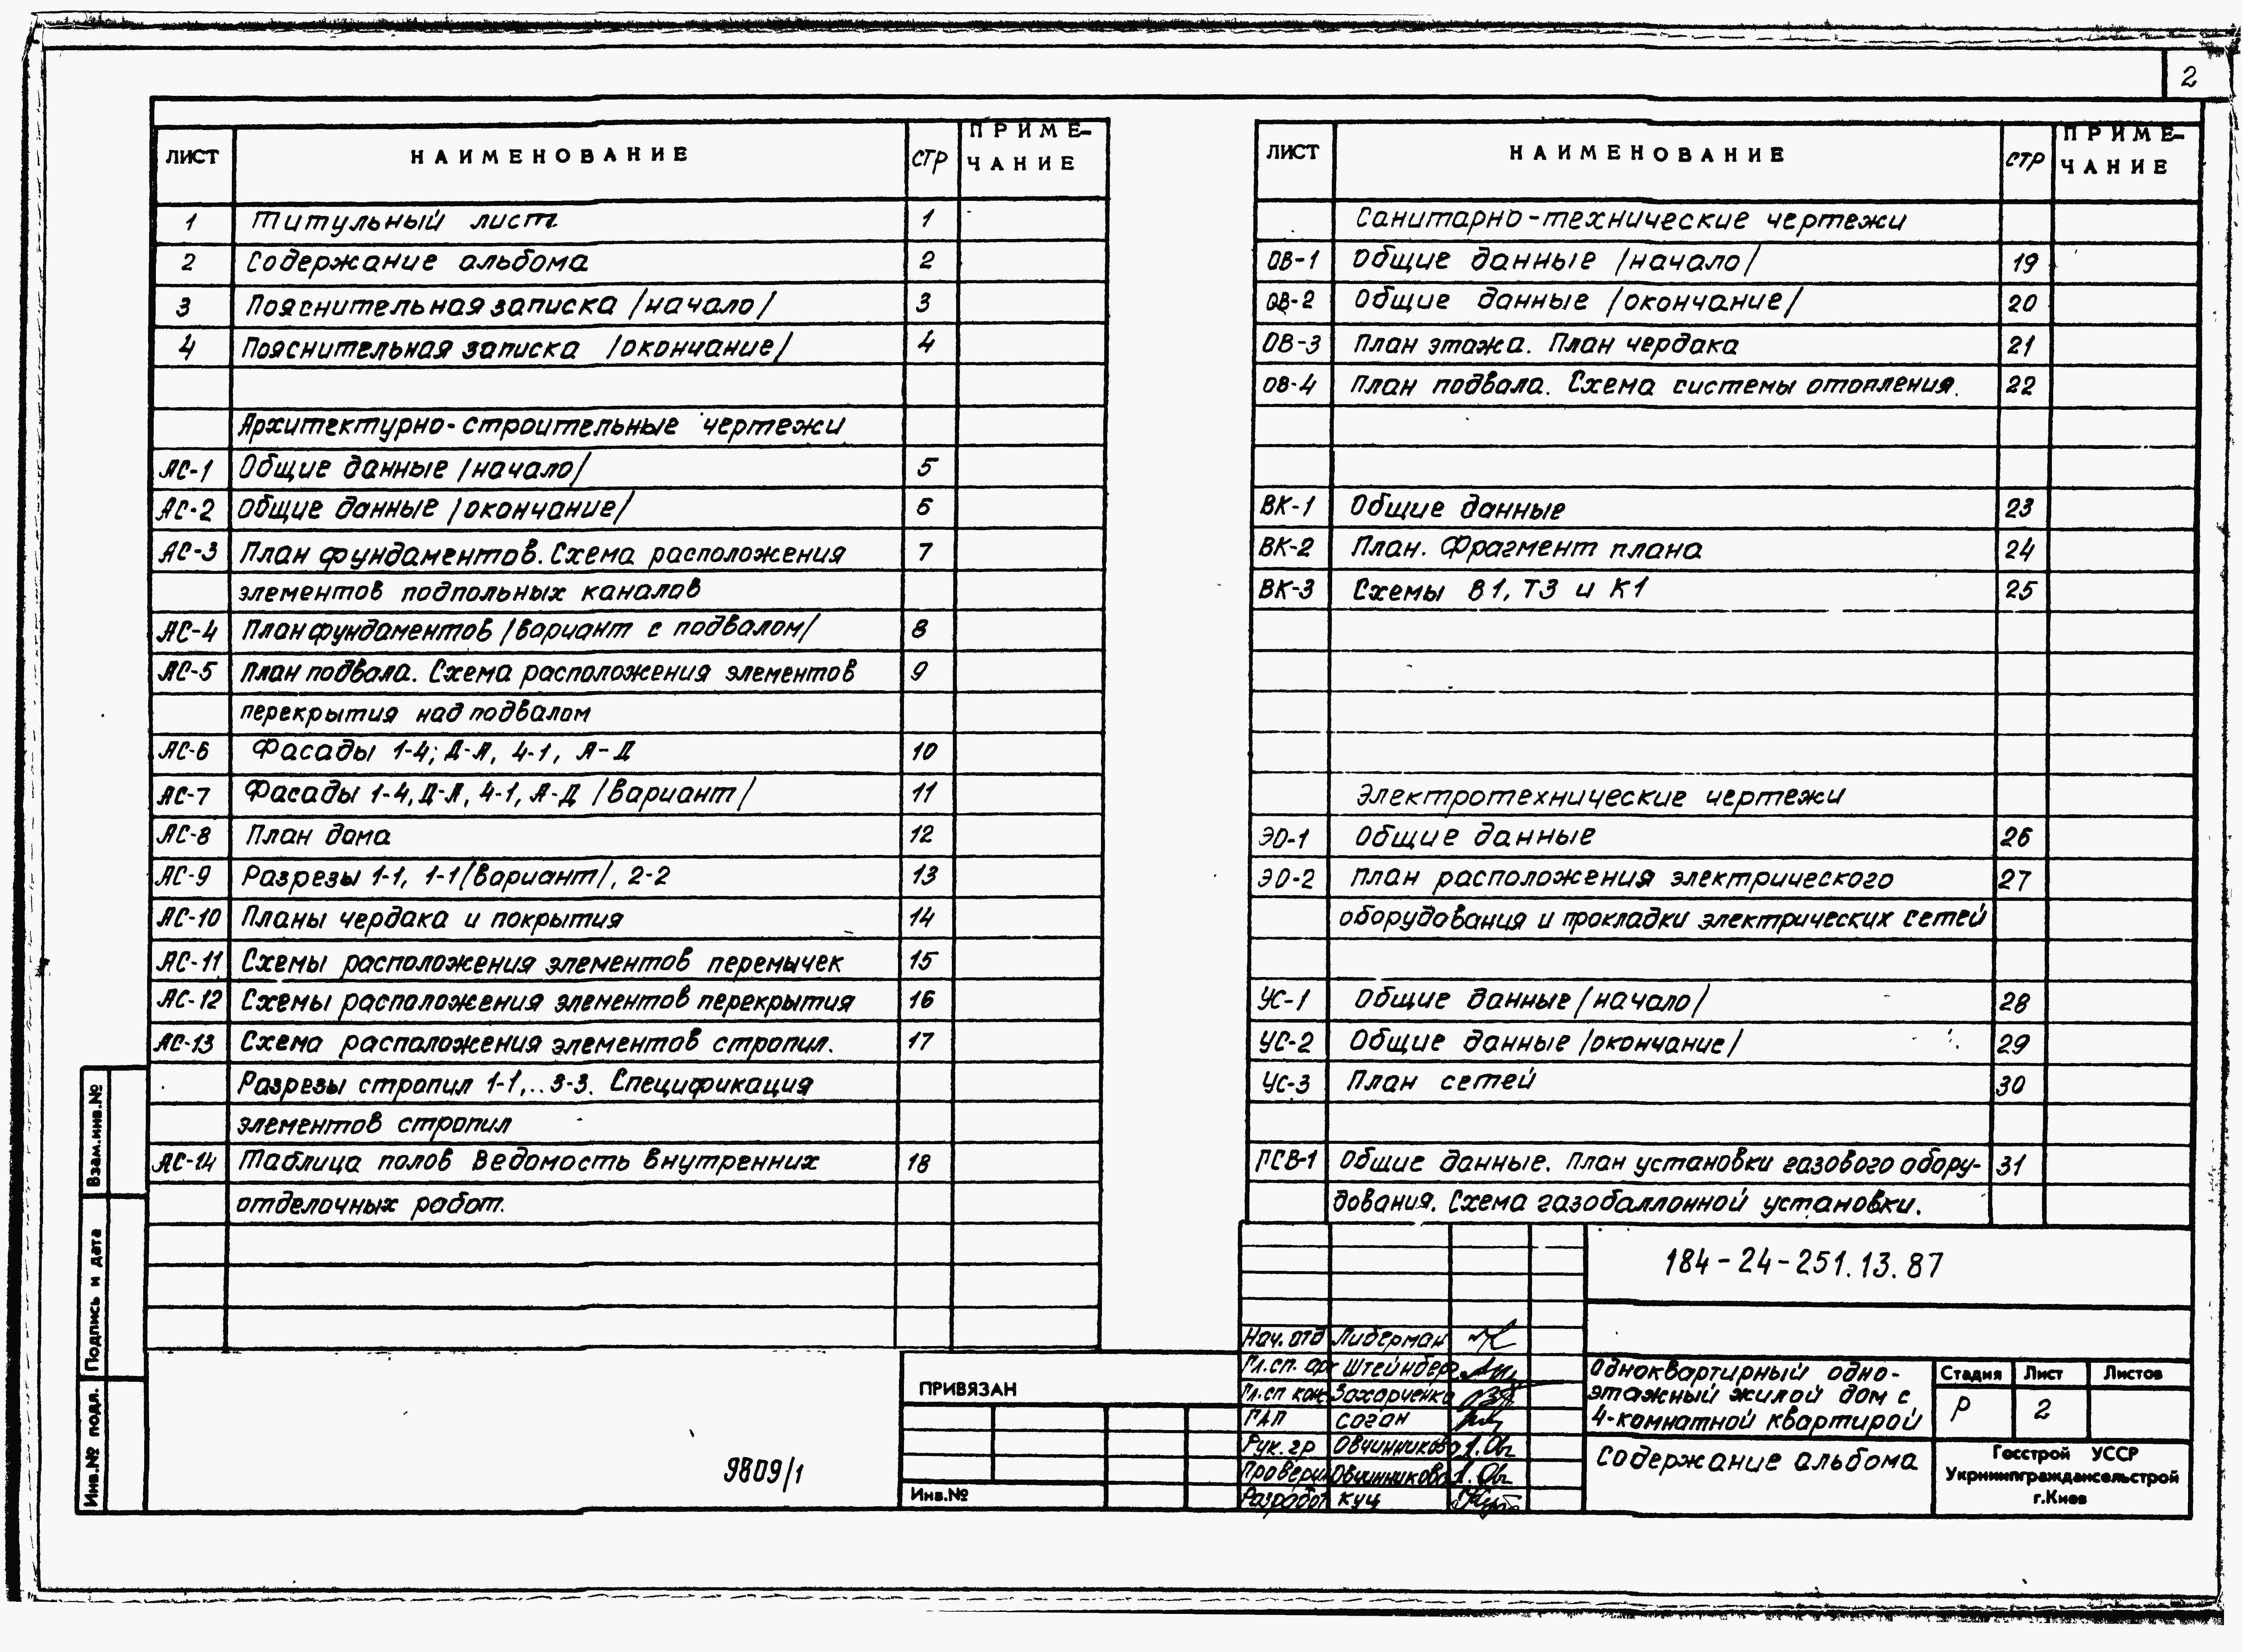 2
ЛИСТ НАИМЕНОВАНИЕ СТР ПРИМЕ-
ЧАНИЕ
1 Титульный лист 1
2 Содержание альбома 2
3 Пояснительная записка /начало/ 3
4 Пояснительная записка /окончание/ 4
Архитектурно-строительные чертежи
АС-1 Общие данные /начало/ 5
АС-2 Общие данные /окончание/ 6
АС-3 План фундаментов. Схема расположения 7
элементов подпольных каналов
АС-4 План фундаментов /вариант с подвалом/ 8
АС-5 План подвала. Схема расположения элементов 9
перекрытия над подвалом
АС-6 Фасады 1-4; Д-А, 4-1, А-Д 10
АС-7 Фасады 1-4, Д-А, 4-1, А-Д /вариант/ 11
АС-8 План дома 12
АС-9 Разрезы 1-1, 1-1/вариант/, 2-2 13
АС-10 Планы чердака и покрытия 14
АС-11 Схемы расположения элементов перемычек 15
АС-12 Схемы расположения элементов перекрытия 16
АС-13 Схема расположения элементов стропил. 17
Разрезы стропил 1-1,..3-3. Спецификация
элементов стропил
АС-14 Таблица полов Ведомость внутренних 18
отделочных работ.
ЛИСТ НАИМЕНОВАНИЕ СТР ПРИМЕ-
ЧАНИЕ
Санитарно-технические чертежи
ОВ-1 Общие данные /начало/ 19
ОВ-2 Общие данные /окончание/ 20
ОВ-3 План этажа. План чердака 21
ОВ-4 План подвала. Схема системы отопления. 22
ВК-1 Общие данные 23
ВК-2 План. Фрагмент плана 24
ВК-3 Схемы В1, Т3 и К1 25
Электротехнические чертежи
ЭО-1 Общие данные 26
ЭО-2 План расположения электрического 27
оборудования и прокладки электрических сетей
УС-1 Общие данные /начало/ 28
УС-2 Общие данные /окончание/ 29
УС-3 План сетей 30
ГСВ-1 Общие данные. План установки газового обору- 31
дования. Схема газобаллонной установки.
Взам.инв.№
Подпись и дата
Инв.№ подл.
9809/1
ПРИВЯЗАН
Инв.№
184-24-251.13.87
Нач. отд Либерман
Гл. сп. арх Штейнберг
Гл. сп кон. Захарченко
ГАП Саган
Рук. гр Овчинникова
Провери Овчинникова
Разработ Куц
Одноквартирный одно-
этажный жилой дом с
4-комнатной квартирой
Содержание альбома
Стадия Лист Листов
Р 2
Госстрой УССР
Укрниипграждансельстрой
г.Киев